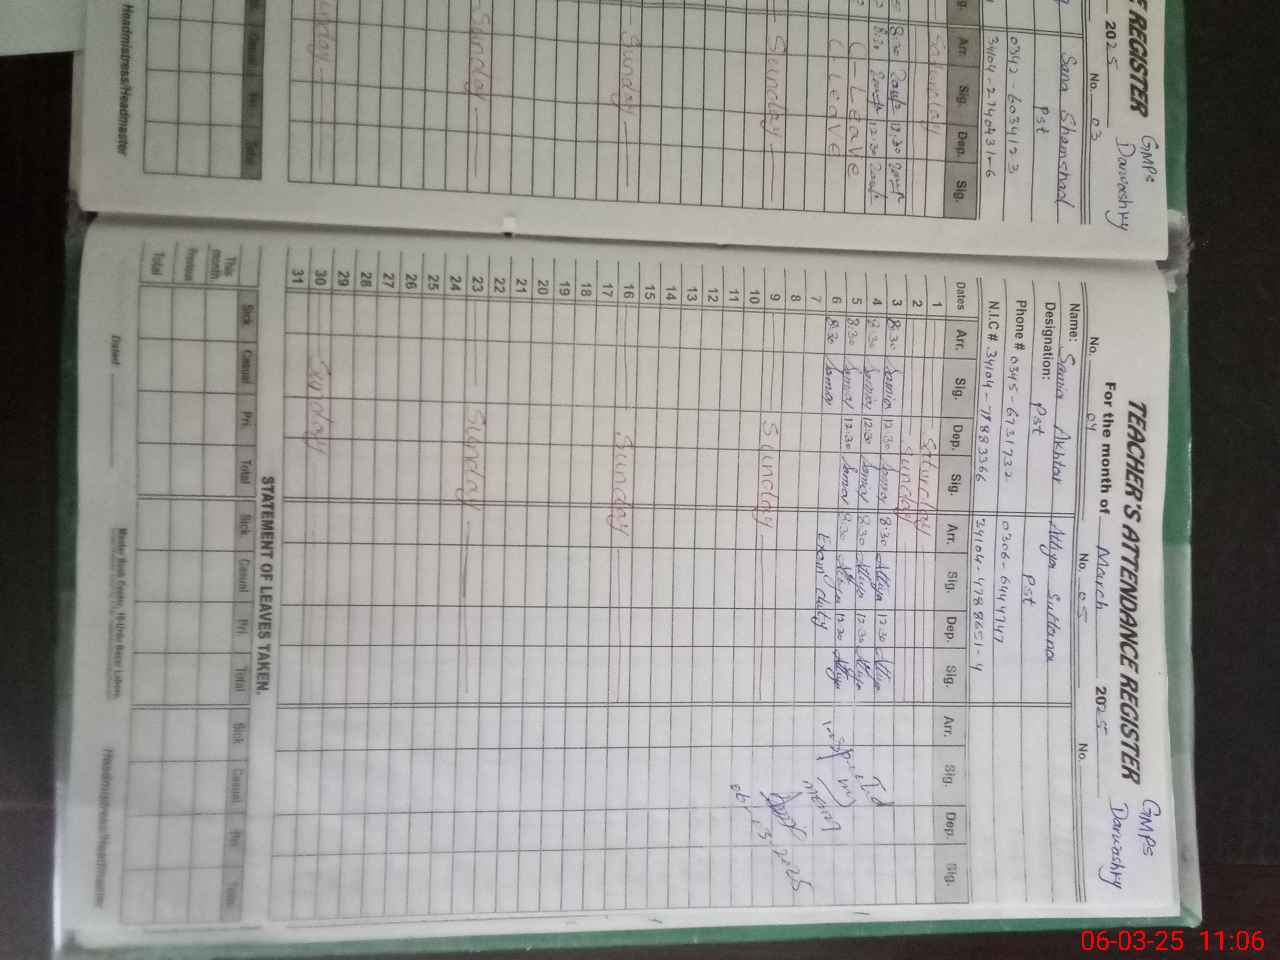 E REGISTER GMPS
2025 Darwashry
No. 03
Sana Shamshad
Pst
0342-6034123
34104-2740431-6
Arr. Sig. Dep. Sig.
Saturday
8:30 12:30
8:30 12:30
C-Leave
C. Leave
Sunday
Sunday
Sunday
Sunday
Casual Total
Headmistress/Headmaster
TEACHER'S ATTENDANCE REGISTER GMPS
For the month of March 2025 Darwashry
No. 04 No. 05 No.
Name: Samia Akhtar Attiya Sultana
Designation: Pst Pst
Phone # 0345-6731732 0306-6444747
N.I.C # 34104-7888336 34104-4788651-4
Dates Arr. Sig. Dep. Sig. Arr. Sig. Dep. Sig. Arr. Sig. Dep. Sig.
1 Saturday
2 Sunday
3 8:30 Samia 12:30 Samia 8:30 Attiya 12:30 Attiya
4 8:30 Samia 12:30 Samia 8:30 Attiya 12:30 Attiya
5 8:30 Samia 12:30 Samia 8:30 Attiya 12:30 Attiya
6 8:30 Samia Exam duty
7
8
9 Sunday
10
11
12
13
14
15
16 Sunday
17
18
19
20
21
22
23 Sunday
24
25
26
27
28
29
30 Sunday
31
STATEMENT OF LEAVES TAKEN.
Sick Casual Pri. Total Sick Casual Pri. Total Sick Casual Pri. Total
This month
Previous
Total
Dated Headmistress/Headmaster
06-03-25 11:06